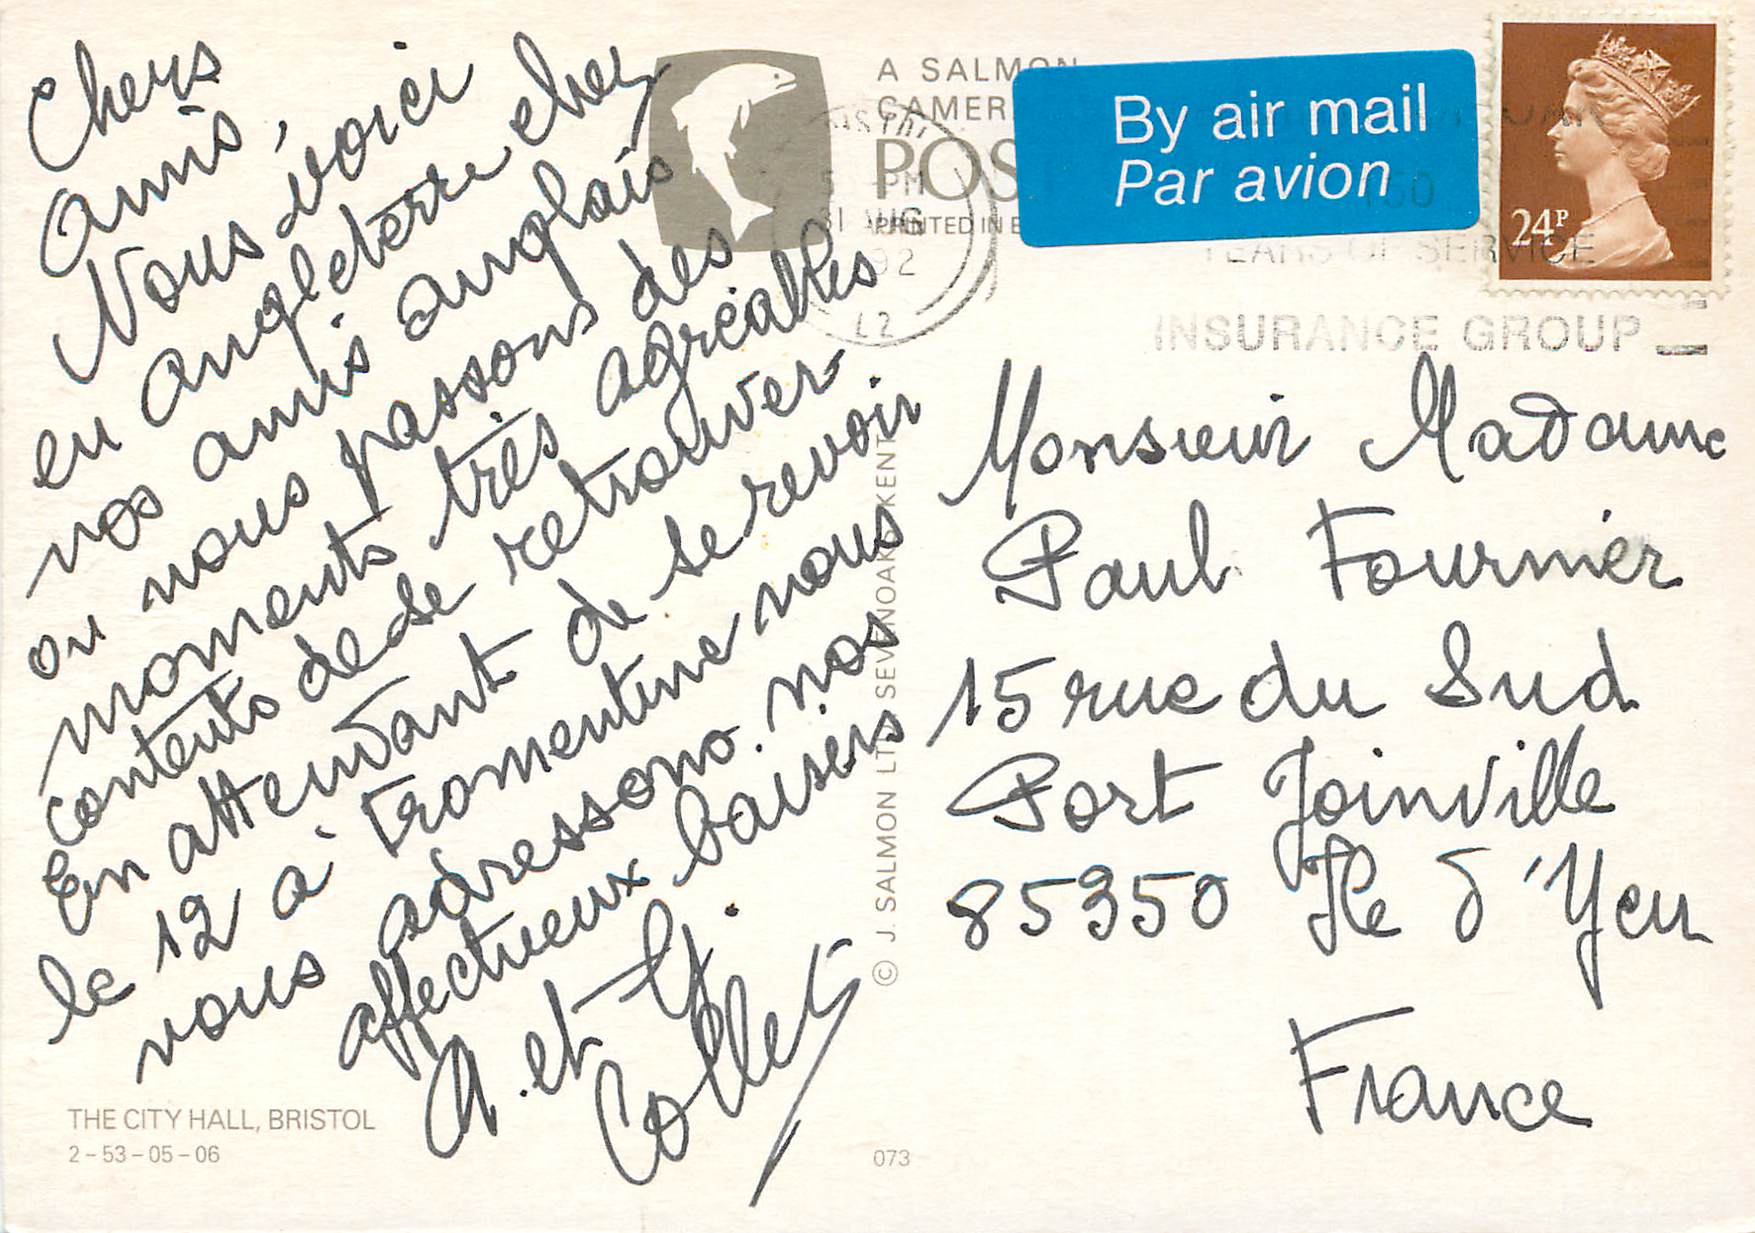 Chers
amis,
Nous voici
en angleterre chez
nos amis anglais
ou nous passons des
moments très agréables
contents de se retrouver
En attendant de se revoir
le 12 à Fromentine nous
vous adressons nos
affectueux baisers
A. et Y.
Collet
THE CITY HALL, BRISTOL
2-53-05-06
A SALMON
CAMER
POST
PRINTED IN E
© J. SALMON LTD SEVENOAKS KENT
073
By air mail
Par avion
24P
5 PM
31 AUG
92
150
YEARS OF SERVICE
INSURANCE GROUP
Monsieur Madame
Paul Fournier
15 rue du Sud
Port Joinville
85350 Ile d'Yeu
France